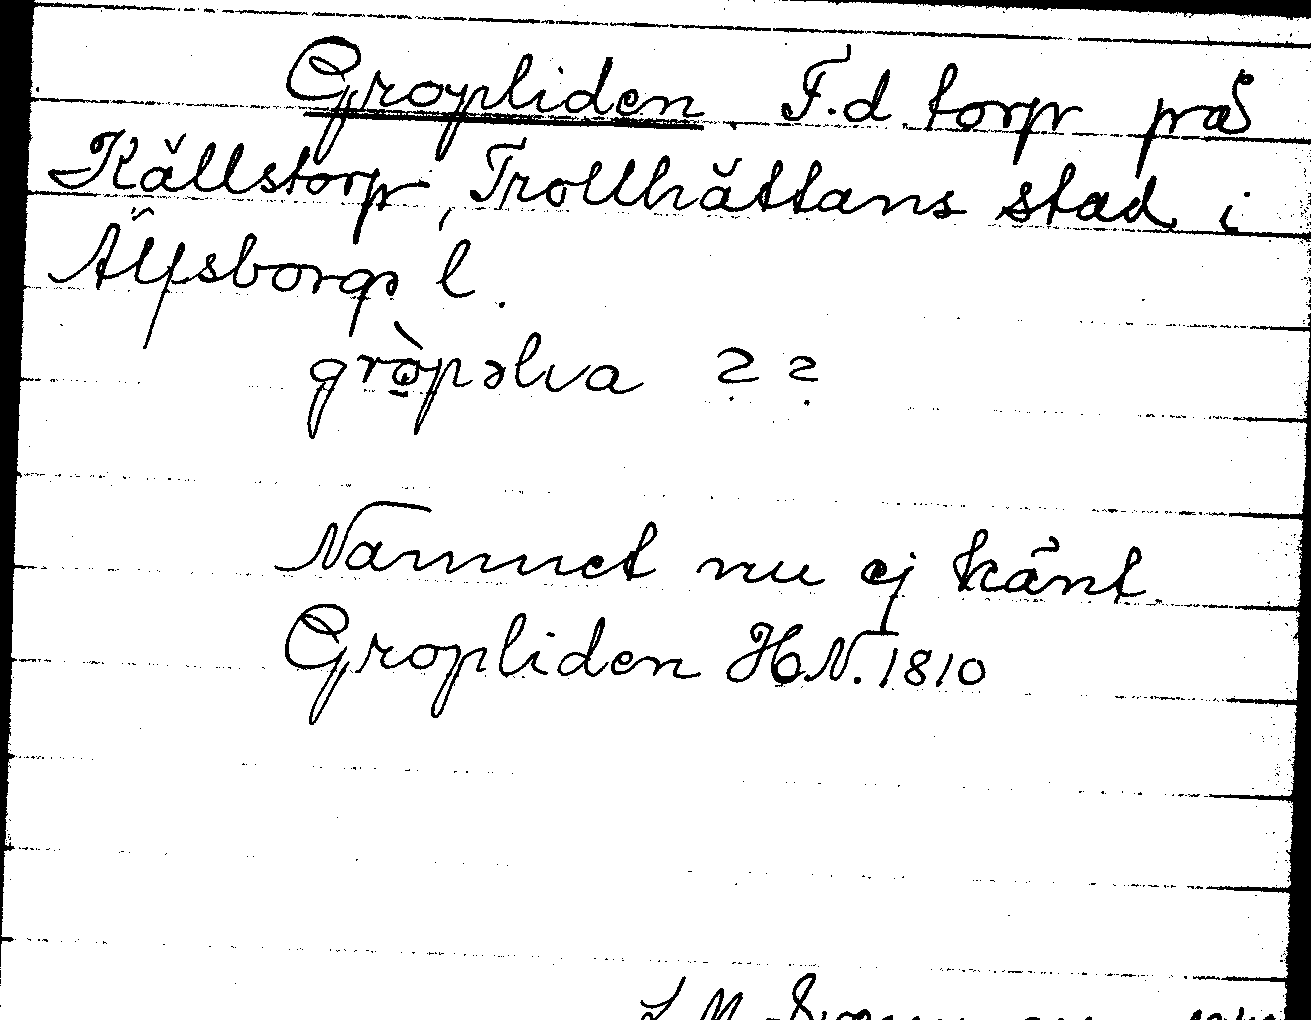 Gropliden. F.d. torp på
Källstorp, Trollhättans stad i
Älfsborgs l.
grò̱pəlıa ? ?
Namnet nu ej känt.
Gropliden HN. 1810